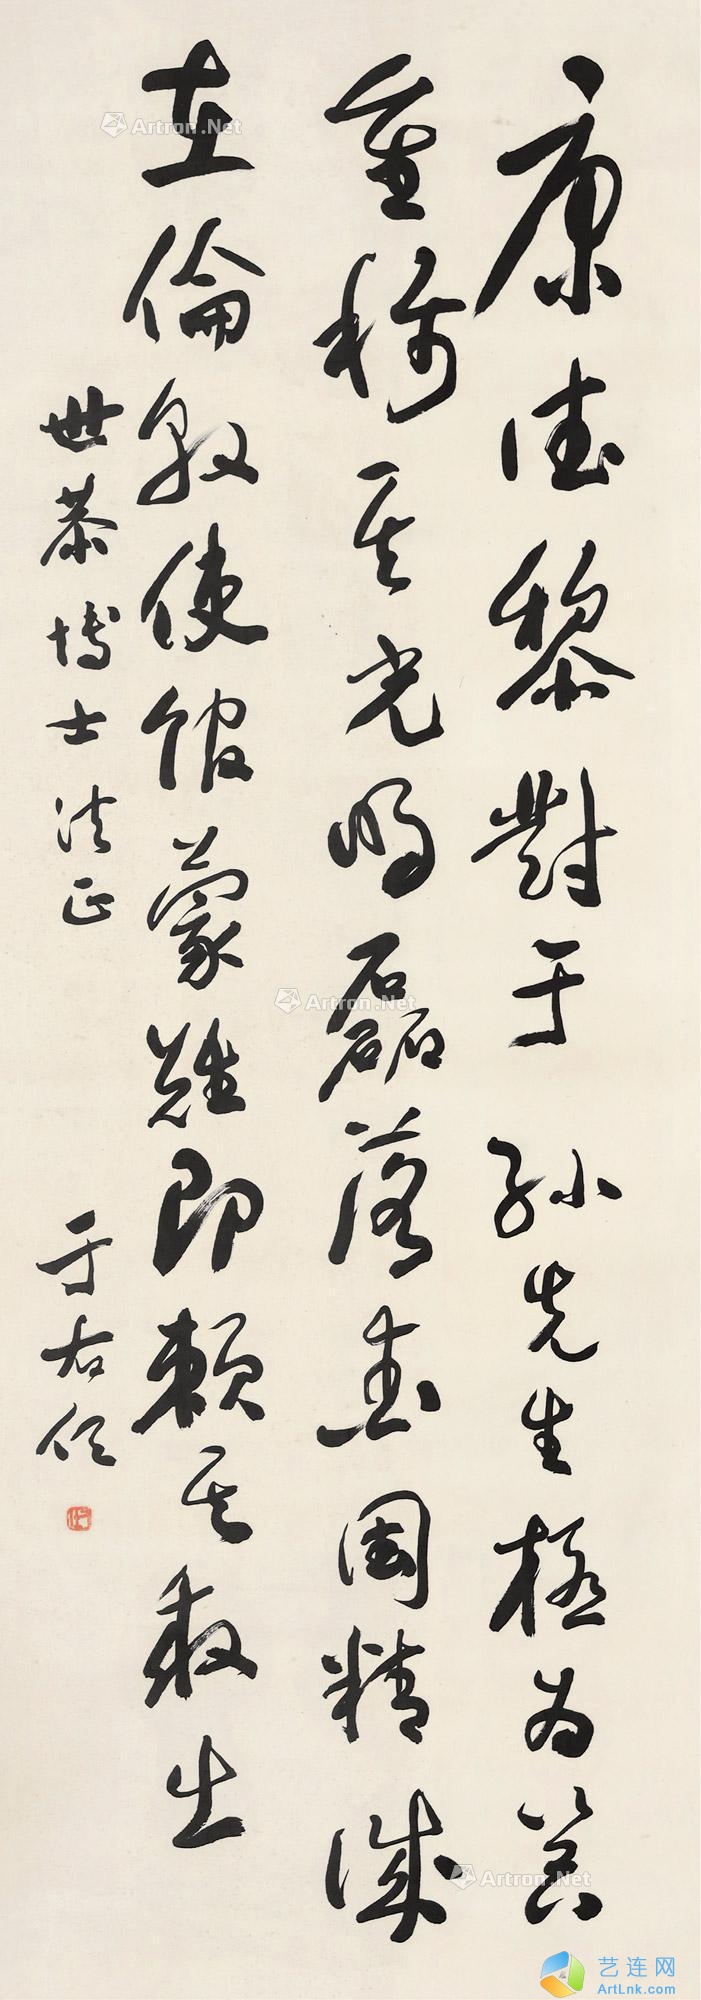 康德黎對于 孫先生極為器
重稱其光明磊落愛國精誠
在倫敦使館蒙難即賴其救出
世恭博士法正 于右任
Artron.Net
Artron.Net
Artron.Net
艺连网
ArtLnk.com